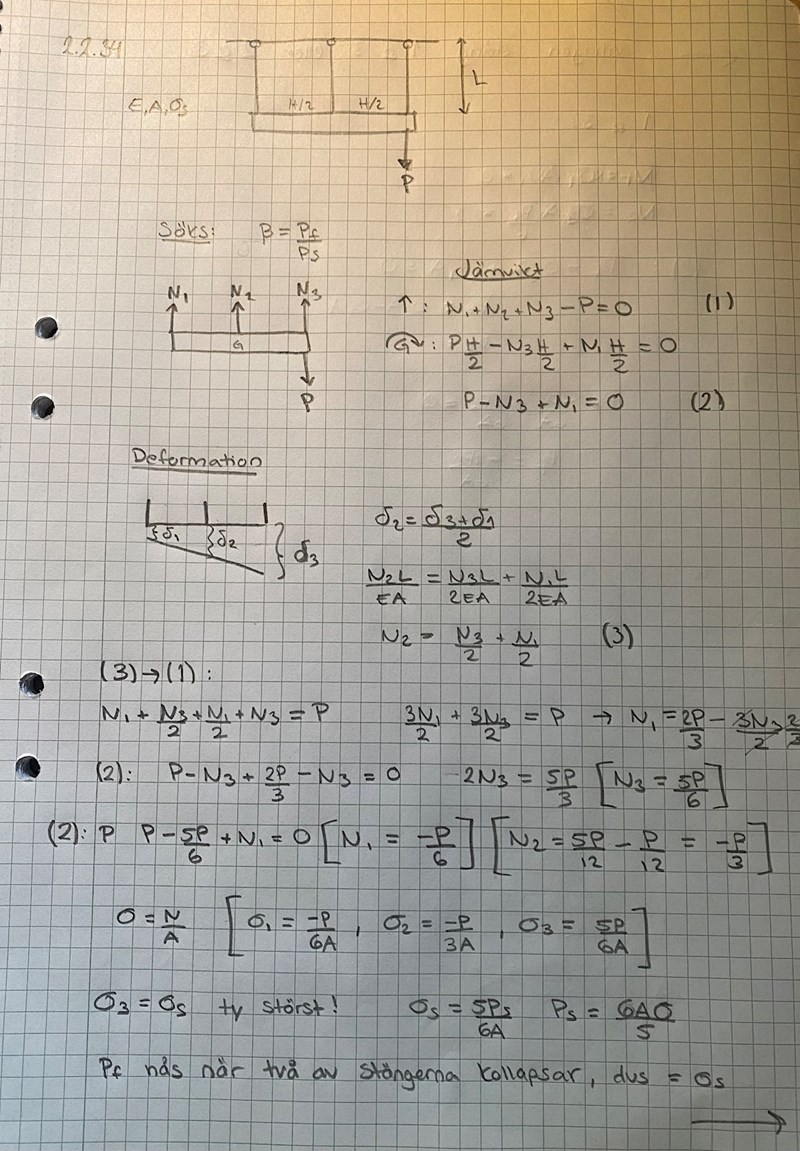 2.2.34
L
H/2 H/2
E, A, σs
P
Söks: β = Pf/Ps
Jämvikt
N1 N2 N3
↑: N1+N2+N3-P=0 (1)
G
G: P H/2 - N3 H/2 + N1 H/2 = 0
P
P-N3+N1=0 (2)
Deformation
δ1 δ2 δ3
δ2 = (δ3+δ1)/2
N2L/EA = N3L/2EA + N1L/2EA
N2 = N3/2 + N1/2 (3)
(3)→(1):
N1 + N3/2 + N1/2 + N3 = P 3N1/2 + 3N3/2 = P → N1 = 2P/3 - 3N3/2 2/3
(2): P-N3+2P/3-N3=0 2N3 = 5P/3 [N3 = 5P/6]
(2): P P-5P/6+N1=0 [N1 = -P/6] [N2 = 5P/12 - P/12 = -P/3]
σ = N/A [σ1 = -P/6A, σ2 = -P/3A, σ3 = 5P/6A]
σ3 = σs ty störst! σs = 5Ps/6A Ps = 6Aσ/5
Pf nås när två av stängerna kollapsar, dvs = σs
→